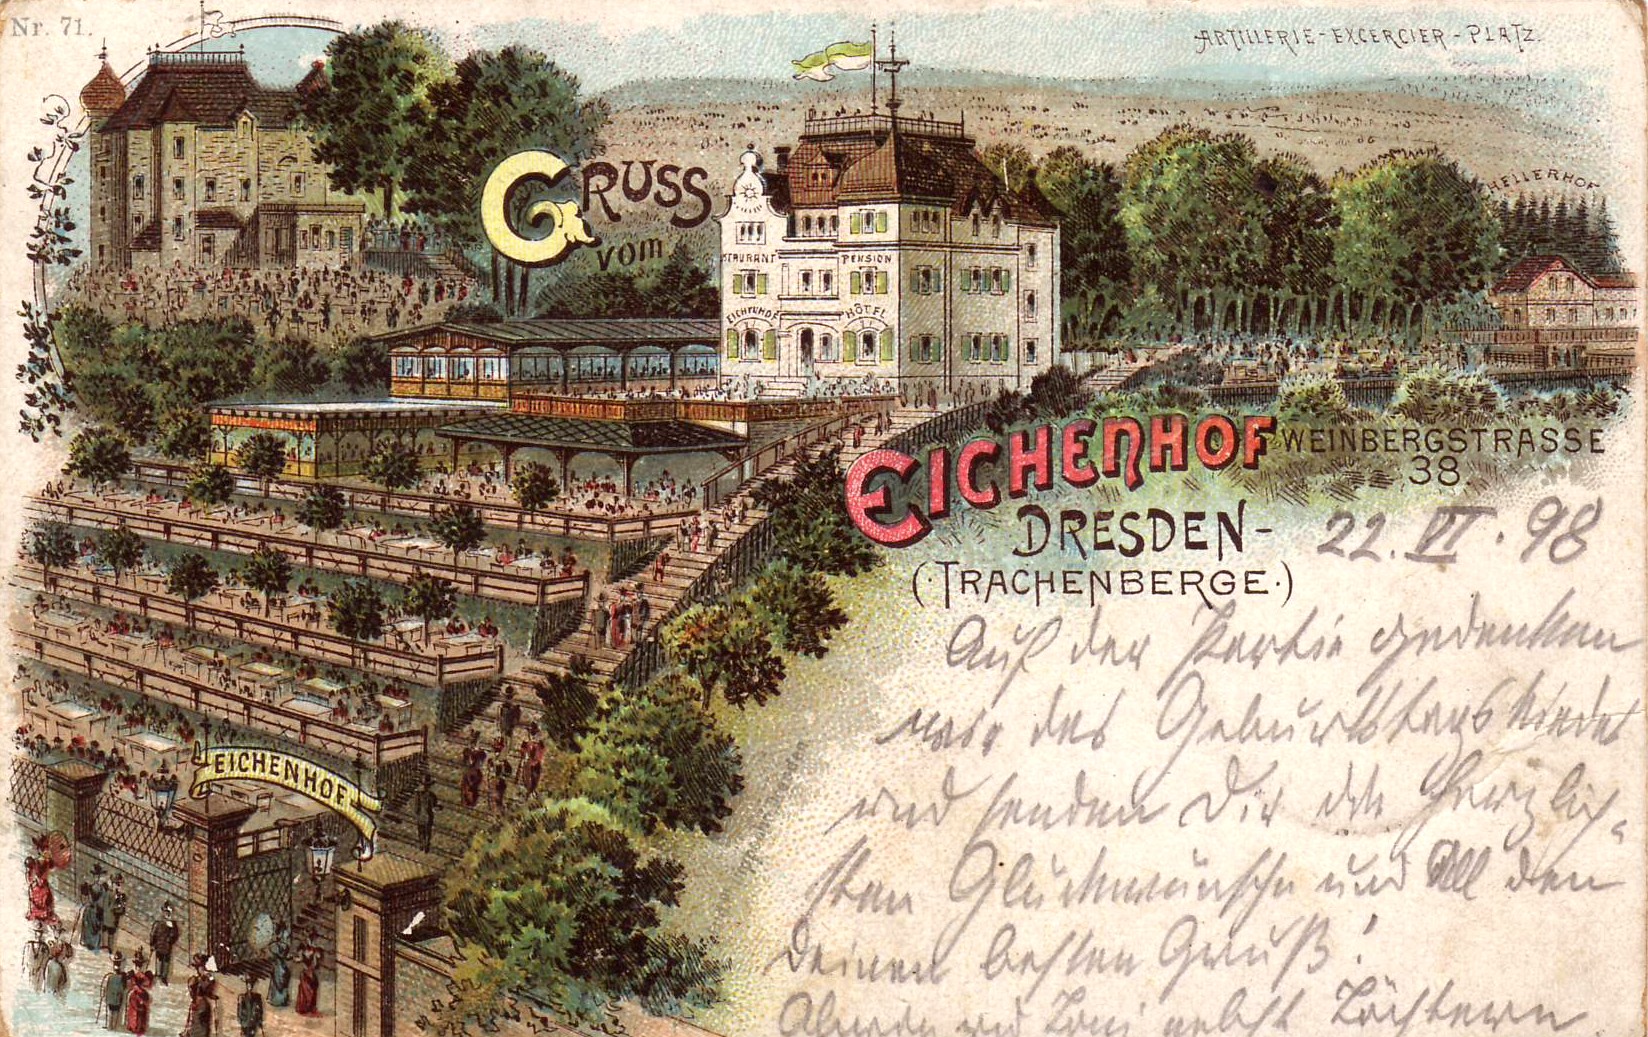 Nr. 71.
ARTILLERIE-EXCERCIER-PLATZ.
HELLERHOF
GRUSS
vom
STAURANT PENSION
EICHENHOF HÔTEL
EICHENHOF WEINBERGSTRASSE
38
DRESDEN-
(TRACHENBERGE.)
EICHENHOF
22. VI. 98
Auf der Partie gedenken
wir des Geburtstagskindes
und senden Dir die herzlich-
sten Glückwünsche und All den
Deinen besten Gruß!
und Toni nebst Töchtern